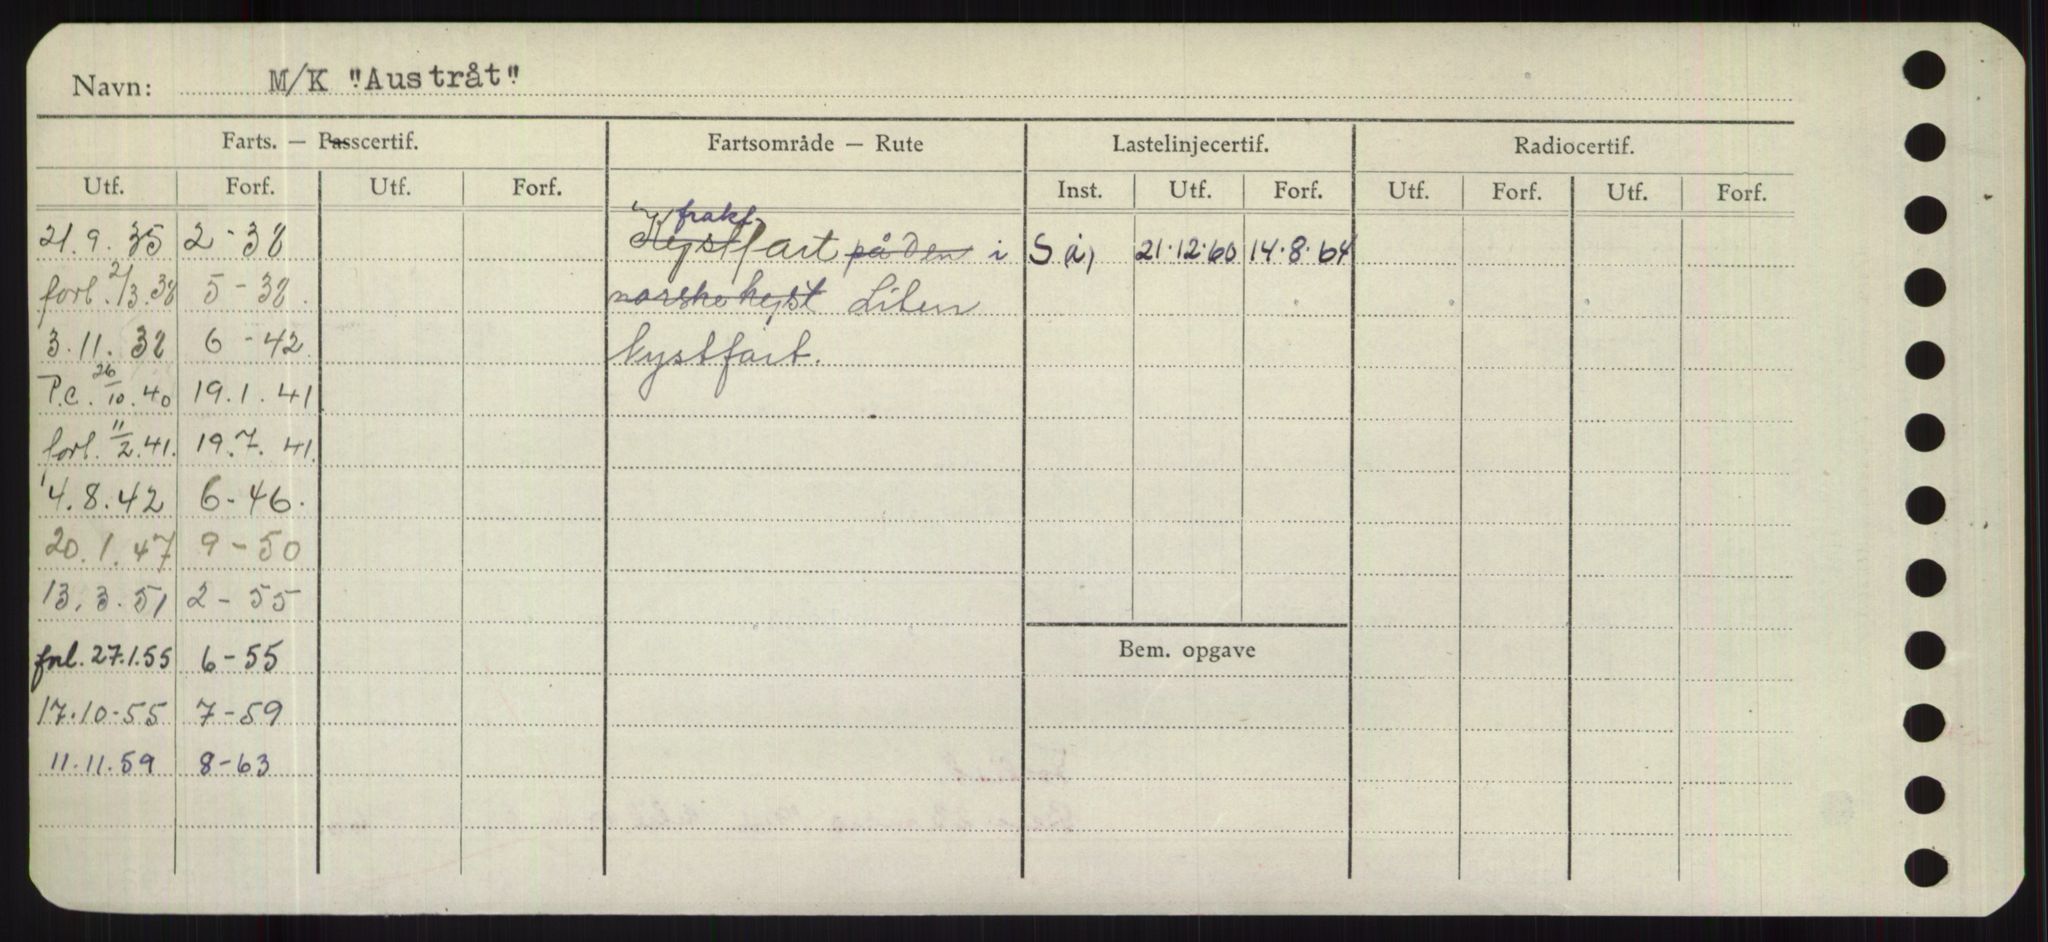 Navn: M/K "Austråt"
Farts. — Passcertif. Fartsområde — Rute Lastelinjecertif. Radiocertif.
Utf. Forf. Utf. Forf. Inst. Utf. Forf. Utf. Forf. Utf. Forf.
frakt
21.9.35 2-38 Kystfart på den i S 21.12.60 14.8.64
forl. 2/3.38 5-38. norske kyst Liten
3.11.38 6-42 kystfart.
P.c. 26/10.40 19.1.41
forl. 11/2.41. 19.7.41.
4.8.42 6-46.
20.1.47 9-50
13.3.51 2-55
forl. 27.1.55 6-55 Bem. opgave
17.10-55 7-59
11.11.59 8-63